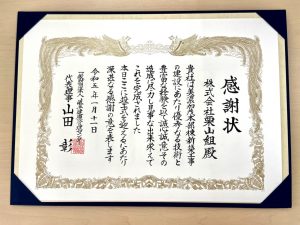 感謝状
株式会社栗山組殿
貴社は美濃加茂本部棟新築工事
の建設にあたり優秀なる技術と
豊富な経験を以て誠心誠意その
造成に尽力し見事な出来栄えで
これを完成されました
本日ここに竣工式を迎えるにあたり
深甚なる感謝の意を表します
令和五年一月十一日
代表理事 山田